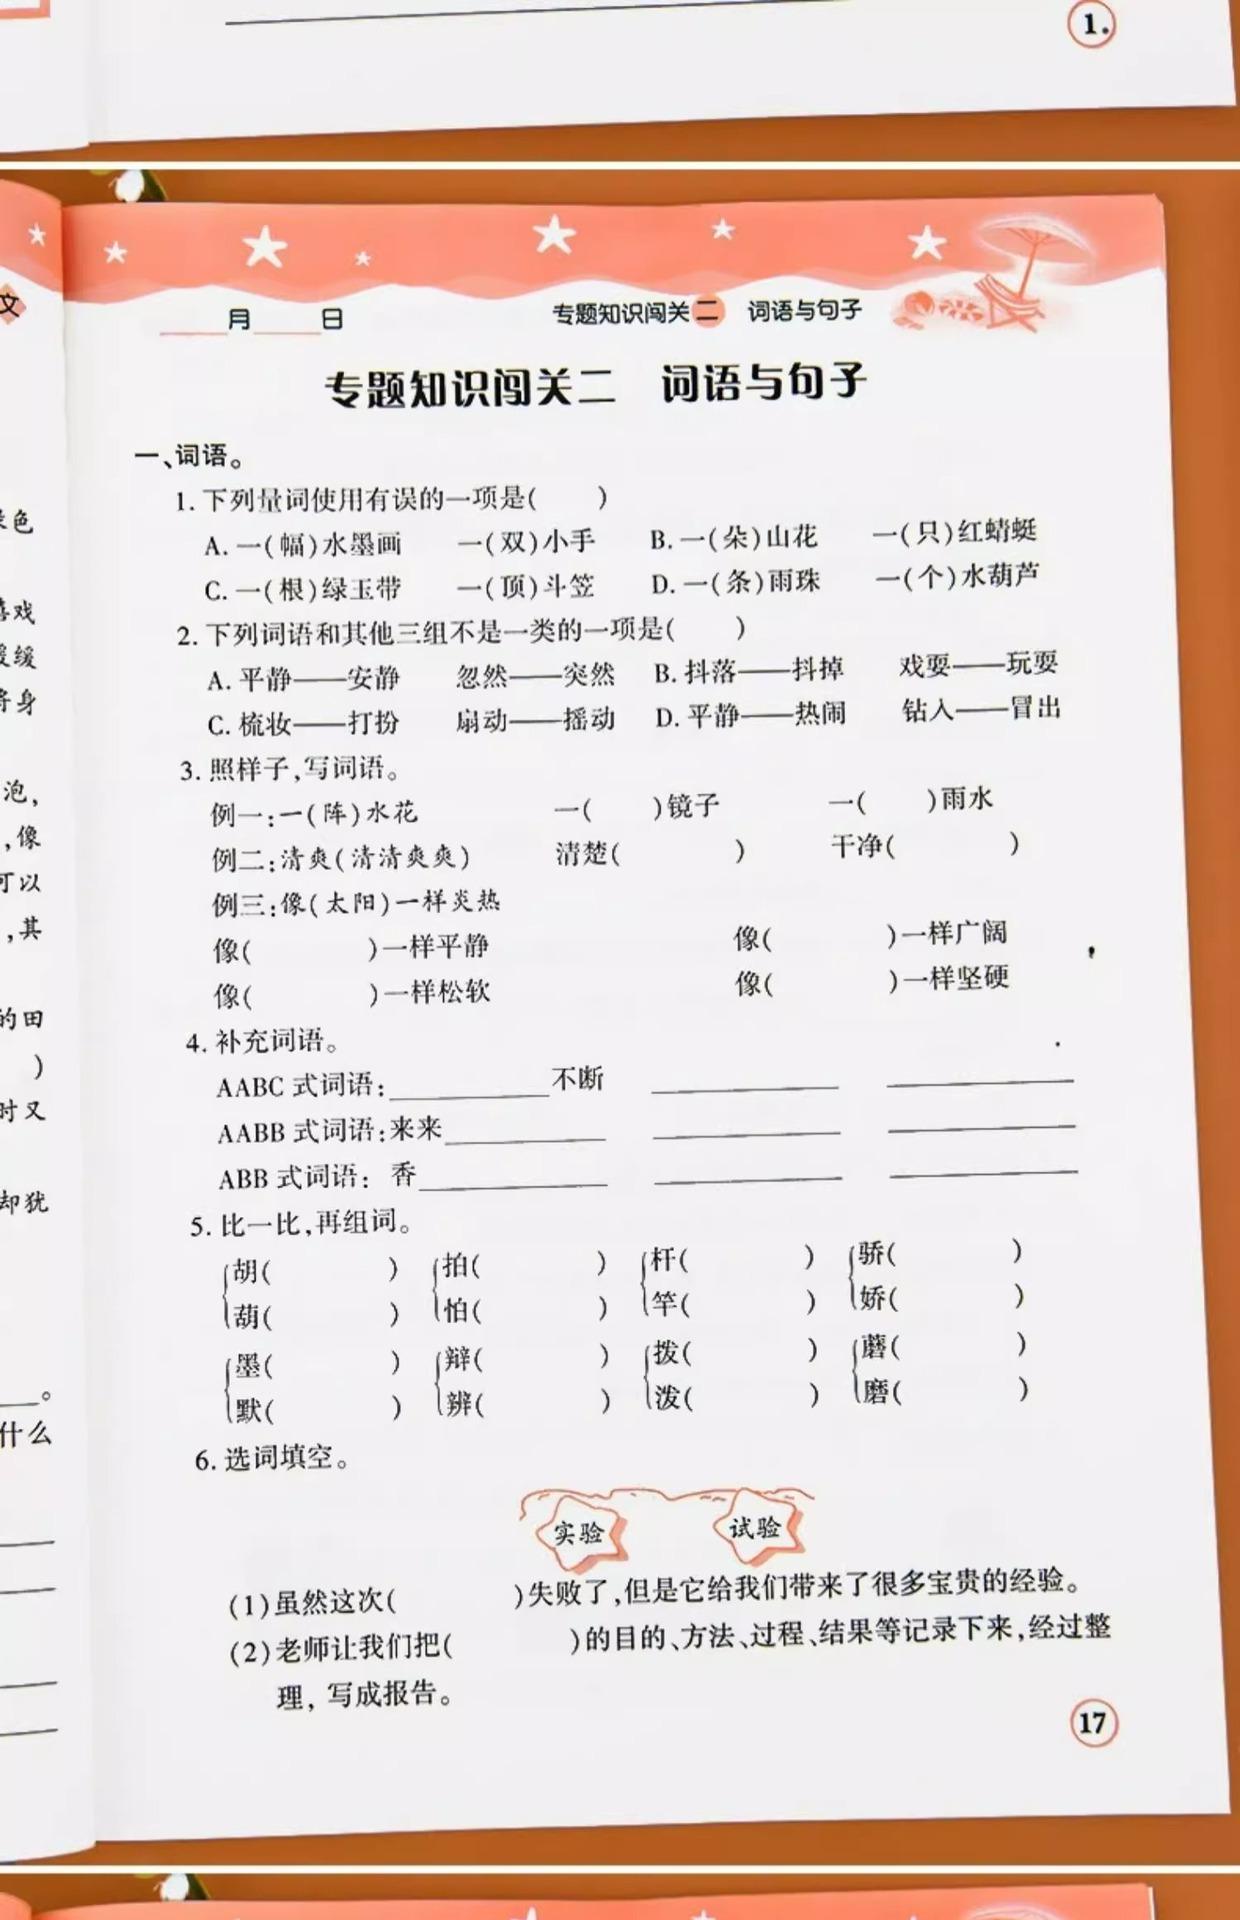 1.
文
月 日 专题知识闯关二 词语与句子
专题知识闯关二 词语与句子
一、词语。
1. 下列量词使用有误的一项是( )
A. 一(幅)水墨画 一(双)小手 B. 一(朵)山花 一(只)红蜻蜓
C. 一(根)绿玉带 一(顶)斗笠 D. 一(条)雨珠 一(个)水葫芦
2. 下列词语和其他三组不是一类的一项是( )
A. 平静——安静 忽然——突然 B. 抖落——抖掉 戏耍——玩耍
C. 梳妆——打扮 扇动——摇动 D. 平静——热闹 钻入——冒出
3. 照样子,写词语。
例一:一(阵)水花 一( )镜子 一( )雨水
例二:清爽(清清爽爽) 清楚( ) 干净( )
例三:像(太阳)一样炎热
像( )一样平静 像( )一样广阔
像( )一样松软 像( )一样坚硬
4. 补充词语。
AABC 式词语:________不断 ________ ________
AABB 式词语:来来________ ________ ________
ABB 式词语: 香________ ________ ________
5. 比一比,再组词。
胡( ) 拍( ) 杆( ) 骄( )
葫( ) 怕( ) 竿( ) 娇( )
墨( ) 辩( ) 拨( ) 蘑( )
默( ) 辨( ) 泼( ) 磨( )
6. 选词填空。
实验 试验
(1)虽然这次( )失败了,但是它给我们带来了很多宝贵的经验。
(2)老师让我们把( )的目的、方法、过程、结果等记录下来,经过整
理, 写成报告。
17
色
戏
缓
身
泡,
,像
可以
,其
的田
)
时又
却犹
。
什么